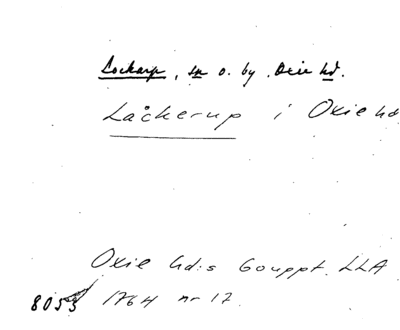 Lockarp, sn o. by, Oxie hd.
Låckerup i Oxie hd
Oxie hd:s bouppt. LLA
8053 1764 nr 12.